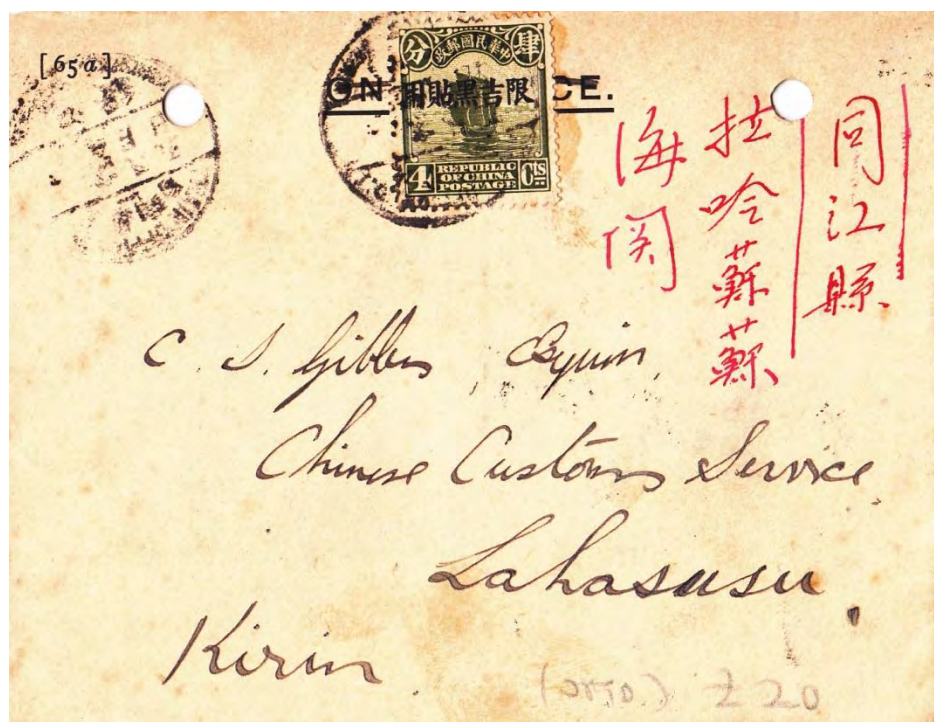 [65a]
ON CE.
分 中華民國郵政 肆
限吉黑貼用
4 REPUBLIC OF CHINA POSTAGE Cts
同江縣
拉哈蘇蘇
海関
C. S. Gibbes, Esquire,
Chinese Customs Service
Lahasusu.
Kirin
Z 20